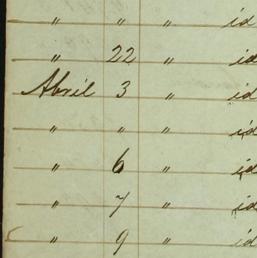 " " " id
" 22 id
Abril 3 " id
" " " id
" 6 " id
" 7 " id
" 9 " id